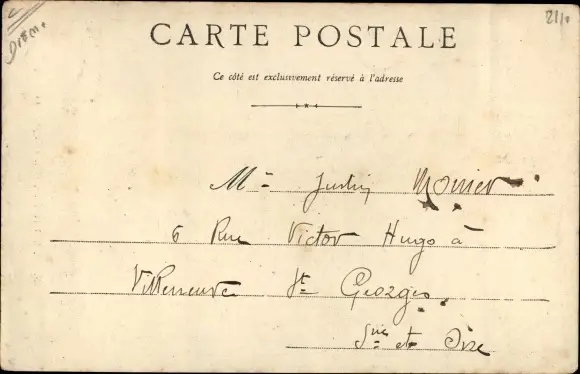 DIEM.
211.
CARTE POSTALE
Ce côté est exclusivement réservé à l'adresse
Mr Justin Monier
6 Rue Victor Hugo à
Villeneuve St Georges
Sne et Oise